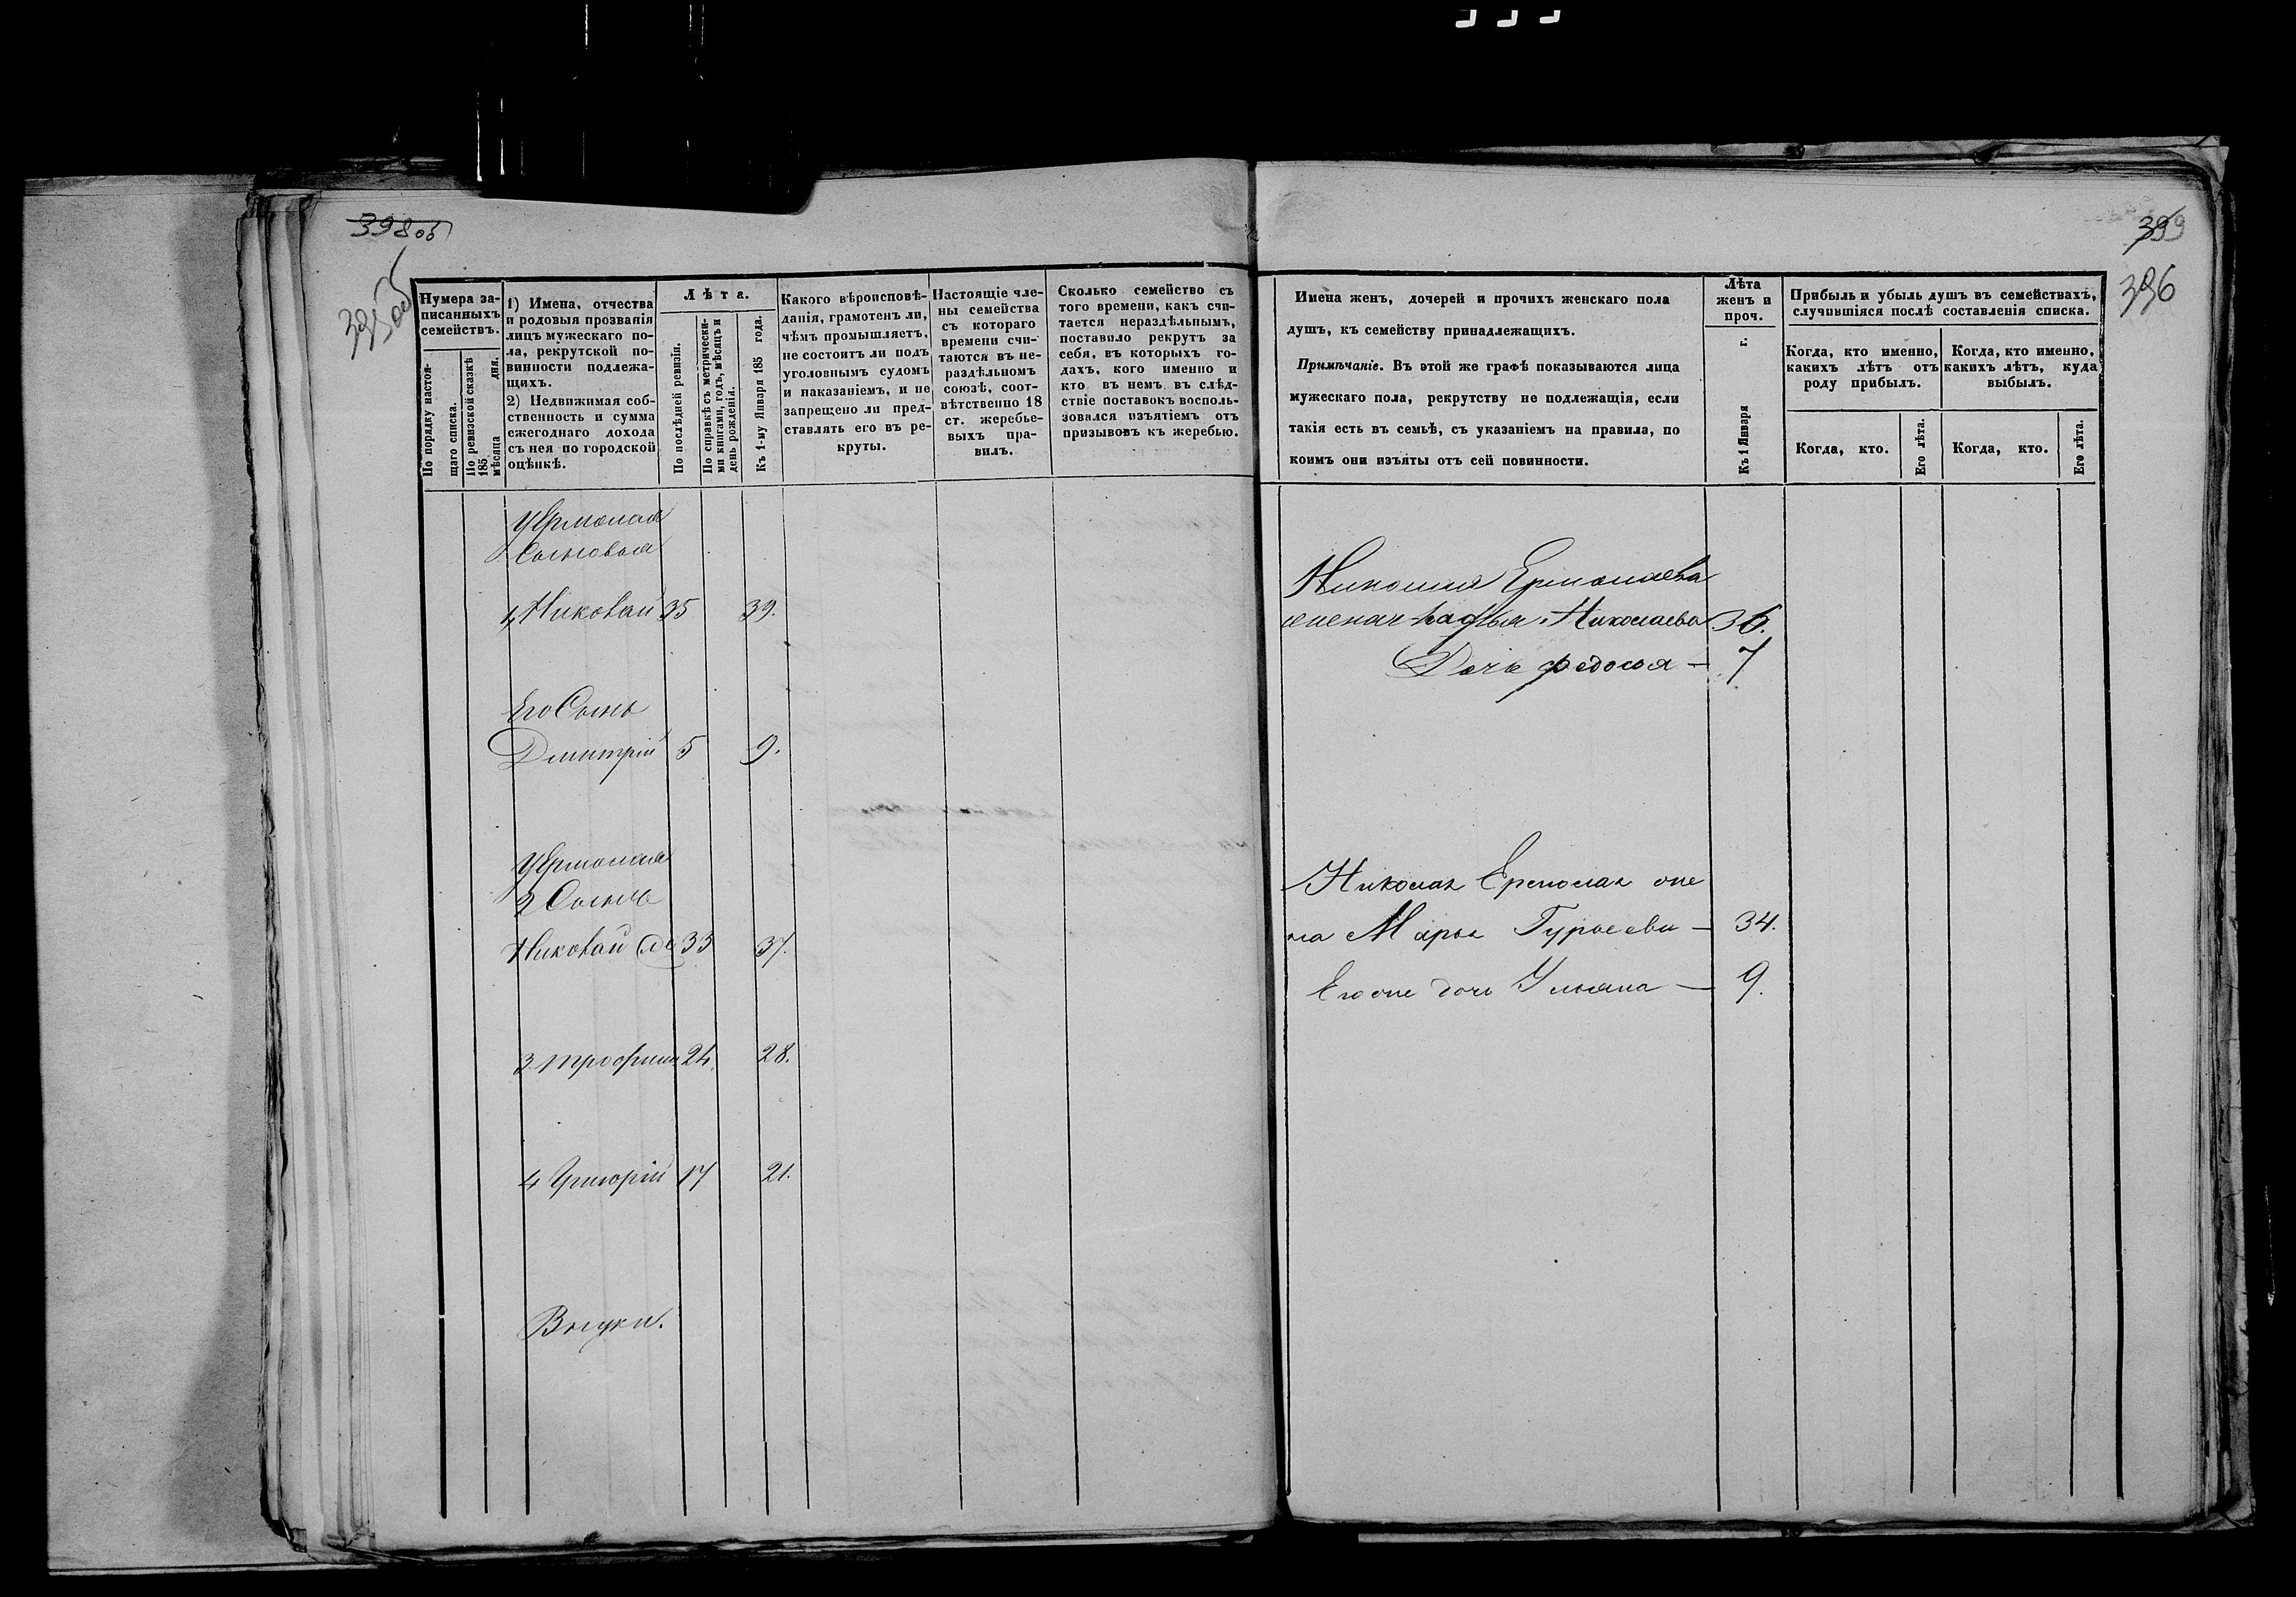 398 об
395 об
Нумера за-
писанныхъ
семействъ.
По порядку настоя-
щаго списка.
По ревизской сказкѣ
185 мѣсяца дня.
1) Имена, отчества
и родовыя прозванія
лицъ мужескаго по-
ла, рекрутской по-
винности подлежа-
щихъ.
2) Недвижимая соб-
ственность и сумма
ежегоднаго дохода
съ нея по городской
оцѣнкѣ.
Лѣта.
По послѣдней ревизіи.
По справкѣ съ метрически-
ми книгами, годъ, мѣсяцъ и
день рожденія.
Къ 1-му Января 185 года.
Какого вѣроисповѣ-
данія, грамотенъ ли,
чѣмъ промышляетъ,
не состоитъ ли подъ
уголовнымъ судомъ
и наказаніемъ, и не
запрещено ли пред-
ставлять его въ ре-
круты.
Настоящіе чле-
ны семейства
съ котораго
времени счи-
таются въ не-
раздѣльномъ
союзѣ, соот-
вѣтственно 18
ст. жеребье-
выхъ пра-
вилъ.
Сколько семейство съ
того времени, какъ счи-
тается нераздѣльнымъ,
поставило рекрутъ за
себя, въ которыхъ го-
дахъ, кого именно и
кто въ немъ въ слѣд-
ствіе поставокъ восполь-
зовался изъятіемъ отъ
призывовъ къ жеребью.
У Ермолая
Сыновья
1, Николай 35 39.
Его Сынъ
Дмитрій 5 9.
У Ермолая
2 Сынъ
Николай 33 37.
3 Трофимъ 24. 28.
4 Григорій 17 21.
Внуки.
399
396
Имена женъ, дочерей и прочихъ женскаго пола
душъ, къ семейству принадлежащихъ.
Примѣчаніе. Въ этой же графѣ показываются лица
мужескаго пола, рекрутству не подлежащія, если
такія есть въ семьѣ, съ указаніемъ на правила, по
коимъ они изъяты отъ сей повинности.
Лѣта
женъ и
проч.
Къ 1 Января г.
Прибыль и убыль душъ въ семействахъ,
случившіяся послѣ составленія списка.
Когда, кто именно,
какихъ лѣтъ отъ
роду прибылъ.
Когда, кто именно,
какихъ лѣтъ, куда
выбылъ.
Когда, кто.
Его лѣта.
Когда, кто.
Его лѣта.
Николая Ермолаева
Николаева 36.
Дочь Федосья — 7
Николая Ермолая же
на Марья Гурьева — 34.
Его же дочь Ульяна — 9.